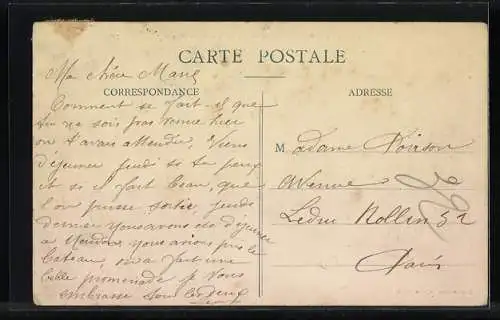 CARTE POSTALE
Ma chère Marie
CORRESPONDANCE
Comment se fait-il que
tu ne sois pas venue hier
on t'avais attendu. Viens
déjeuner jeudi si tu peux
et si il fait beau, que
l'on puisse sortir, jeudi
dernier nous avons été déjeuner
à Meudon, nous avions pris le
bateau, on a fait une
belle promenade je vous
embrasse tous les deux
ADRESSE
Madame Poirson
Avenue
Ledru Rollin 52
Paris